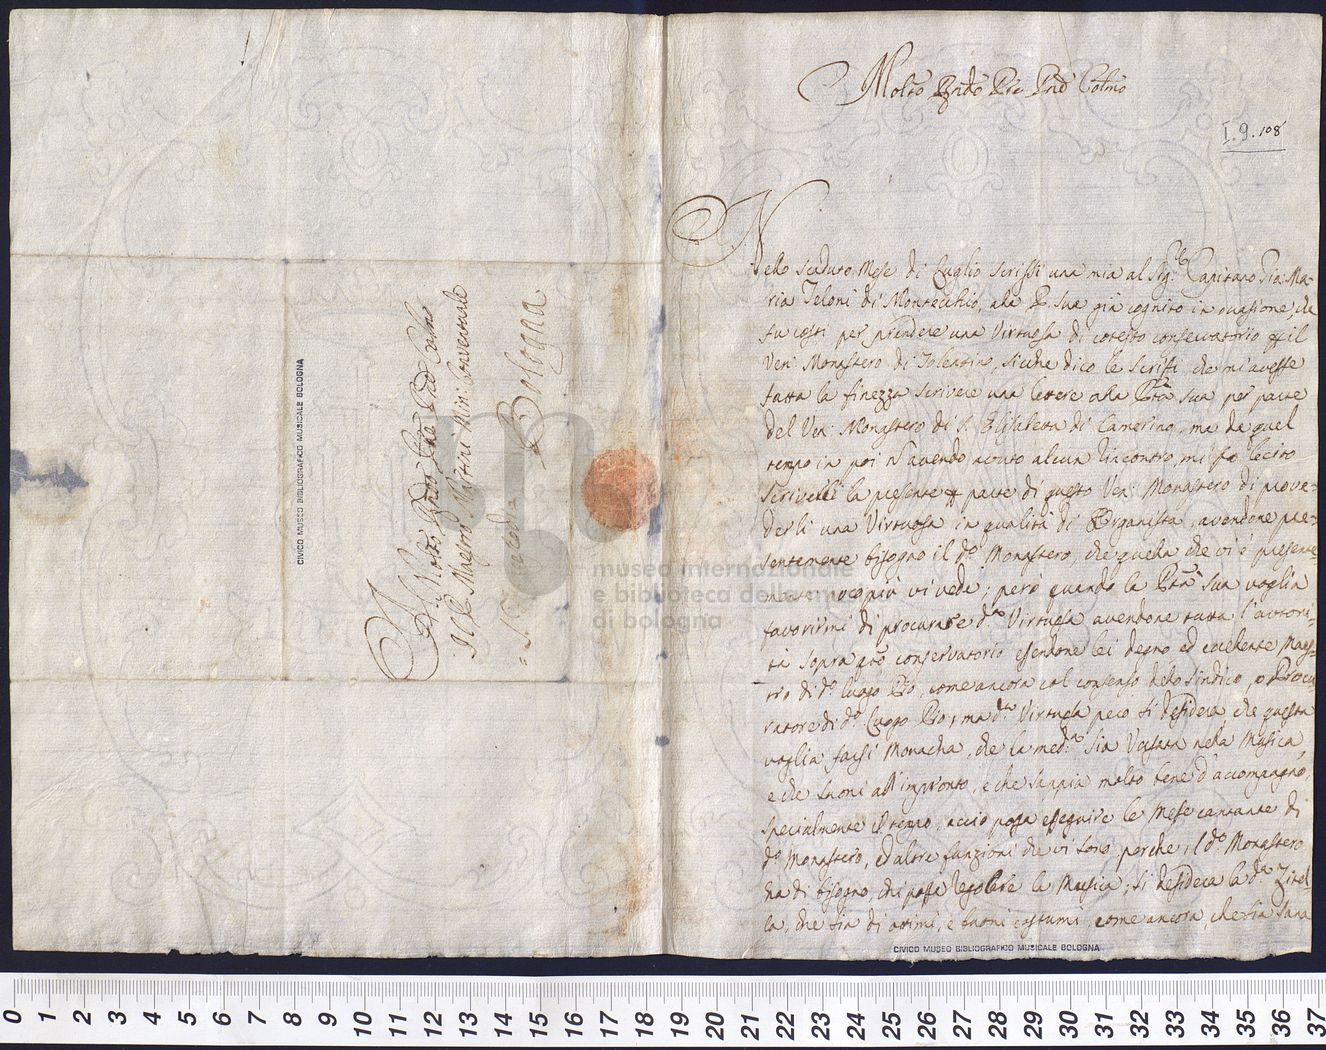 Molto Rndo Pre Pnd Colmo
I. 9. 108
Nello scaduto Mese di Luglio scrissi una mia al Sig.re Capitano Gio: Ma-
ria Teloni di Montecchio, alla P. Sua già cognito in ocasione, che
fu costì per prendere una Virtuosa di cotesto conservatorio per il
Ven: Monastero di Tolentino, sicche dico le scrissi, che mi avesse
fatta la finezza scrivere una lettere alla Ptà sua per parte
del Ven: Monastero di S. Elisabetta di Camerino, ma da quel
tempo in poi n avendo avuto alcun rincontro, mi fò lecito
scriverli la presente per parte di questo Ven: Monastero di prove-
derli una Virtuosa in qualità di Organista, avendone pre-
sentemente bisogno il do Monastero, che quella che vi è presente
poco più vi vede; però quando la Ptà Sua voglia
favorirmi di procurare da Virtuosa avendone tutta l'autori-
tà sopra qto conservatorio essendone lei degno ed eccellente Maes-
tro di do luogo Pio, come ancora col consenso dello Sindico, o Procu-
ratore di do Luogo Pio, ma da Virtuosa pero si desidera, che questa
voglia farsi Monacha, che la meda sia Versata nella Musica,
e che suoni all'impronto, e che sappia molto bene d'accompagno,
specialmente il tempo, acciò possa esseguire le Messe cantate di
do Monastero, ed altre funzioni che vi sono, perche il do Monastero
ha di bisogno, chi possa regolare la Musica; si desidera la da Zitel
la, che sia di ottimi, e buoni costumi, come ancora, che sia sana
CIVICO MUSEO BIBLIOGRAFICO MUSICALE BOLOGNA
Al Molto Rndo Pre Pnd Colmo
Il P. Maestro Martini Min: Conventuale
Bologna
CIVICO MUSEO BIBLIOGRAFICO MUSICALE BOLOGNA
museo internazionale
e biblioteca della musica
di bologna
0 1 2 3 4 5 6 7 8 9 10 11 12 13 14 15 16 17 18 19 20 21 22 23 24 25 26 27 28 29 30 31 32 33 34 35 36 37